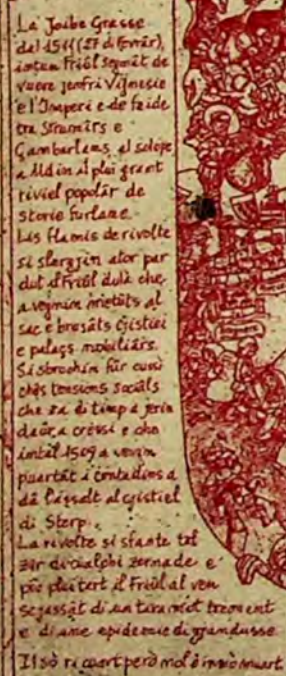 La Joibe Grasse
dal 1511 (27 di Fevrâr),
intun Friûl segnât de
vuere jenfri Vignesie
e l'Imperi e de faide
tra Strumîrs e
Çambarlans, al sclope
a Udin il plui grant
riviel popolâr de
storie furlane.
Lis flamis de rivolte
si slargjin ator par
dut il Friûl dulà che
a vegnin metûts al
sac e brusâts cjistiei
e palaçs nobiliârs.
Si sbrochin fûr cussì
chês tensions sociâls
che za di timp a jerin
daûr a cressi e che
intal 1509 a vevin
puartât i contadins a
dâ l'assalt al cjistiel
di Sterp.
La rivolte si sfante tal
zîr di cualchi zornade e
pôc plui tart il Friûl al ven
segnât di un taramot
e di une epidemie di gjandusse
Il so ricuart però nol è mort.